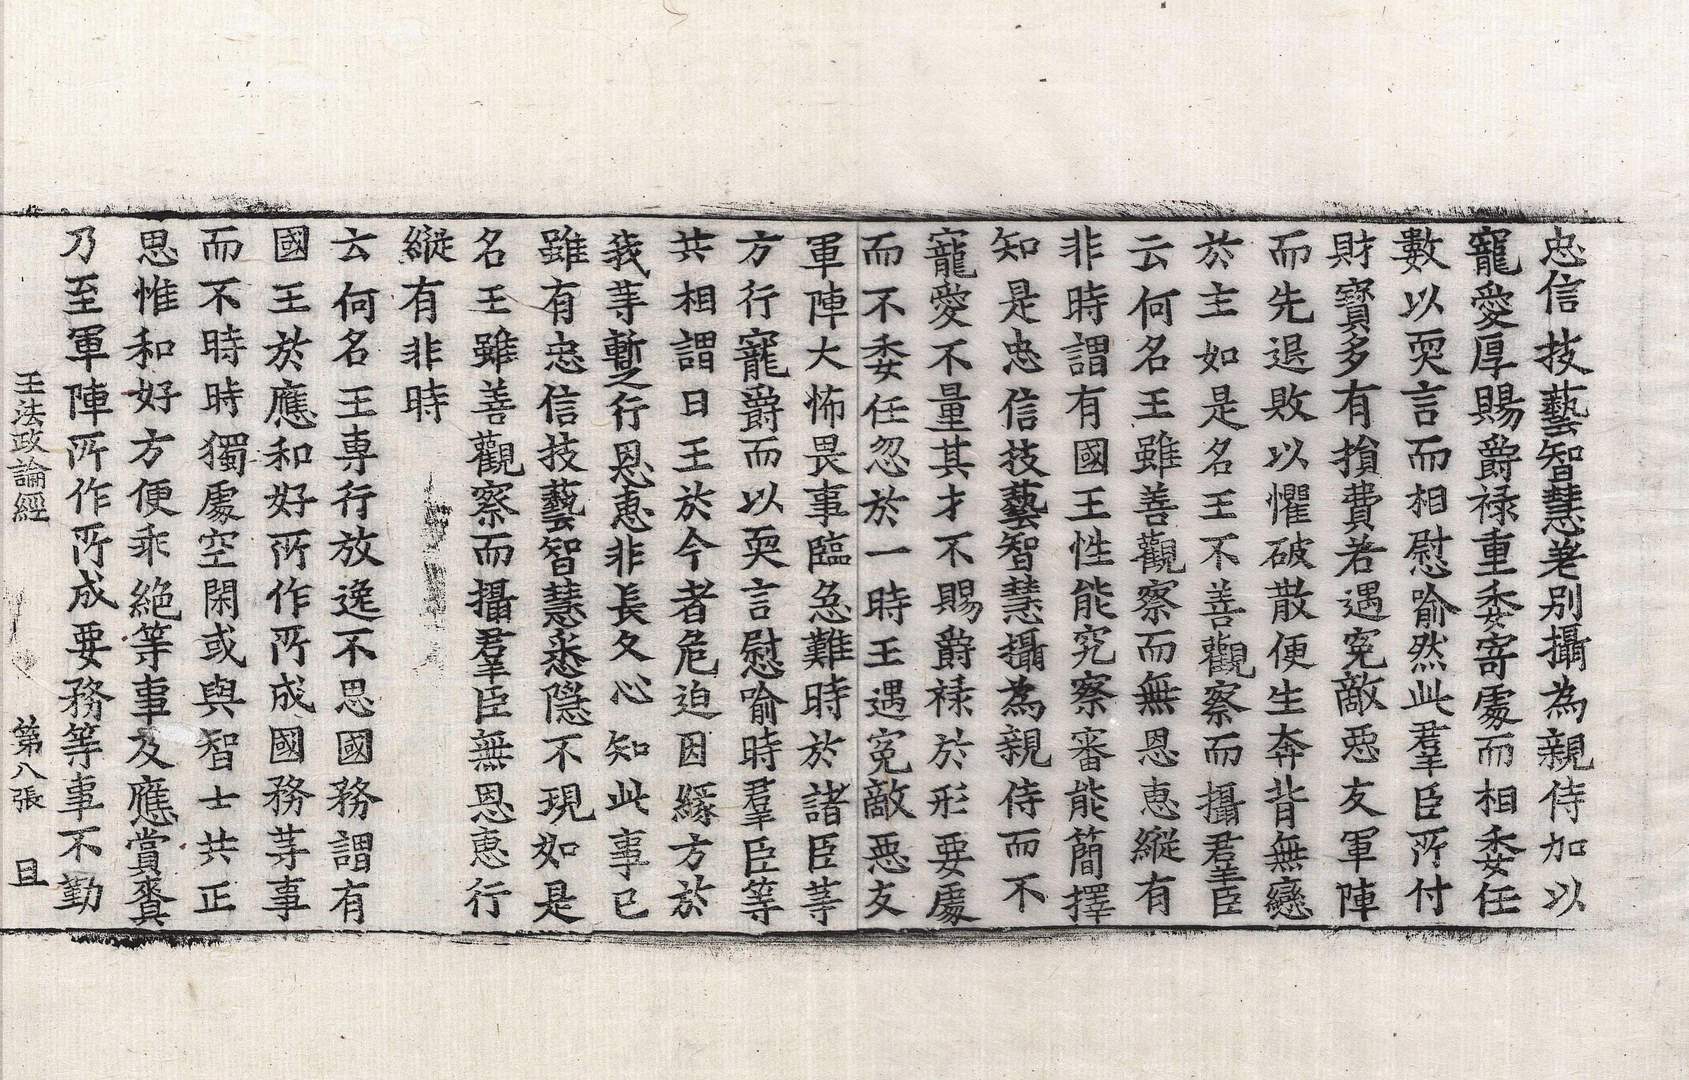 忠信技藝智慧差別攝為親侍加以
寵愛厚賜爵祿重委寄處而相委任
數以耎言而相慰喻然此羣臣所付
財寶多有損費若遇寃敵惡友軍陣
而先退敗以懼破散便生奔背無戀
於主如是名王不善觀察而攝羣臣
云何名王雖善觀察而無恩惠縱有
非時謂有國王性能究察審能簡擇
知是忠信技藝智慧攝為親侍而不
寵愛不量其才不賜爵祿於形要處
而不委任忽於一時王遇寃敵惡友
軍陣大怖畏事臨急難時於諸臣等
方行寵爵而以耎言慰喻時羣臣等
共相謂曰王於今者危迫因緣方於
我等暫行恩惠非長久心知此事已
雖有忠信技藝智慧悉隱不現如是
名王雖善觀察而攝羣臣無恩惠行
縱有非時
云何名王專行放逸不思國務謂有
國王於應和好所作所成國務等事
而不時時獨處空閑或與智士共正
思惟和好方便乖絕等事及應賞賚
乃至軍陣所作所成要務等事不勤
王法政論經 第八張 且